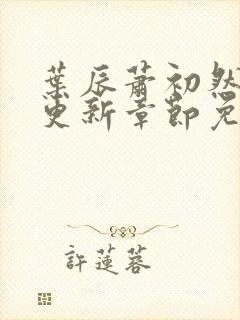 葉辰蕭初然
更新章節免
許蓮蓉